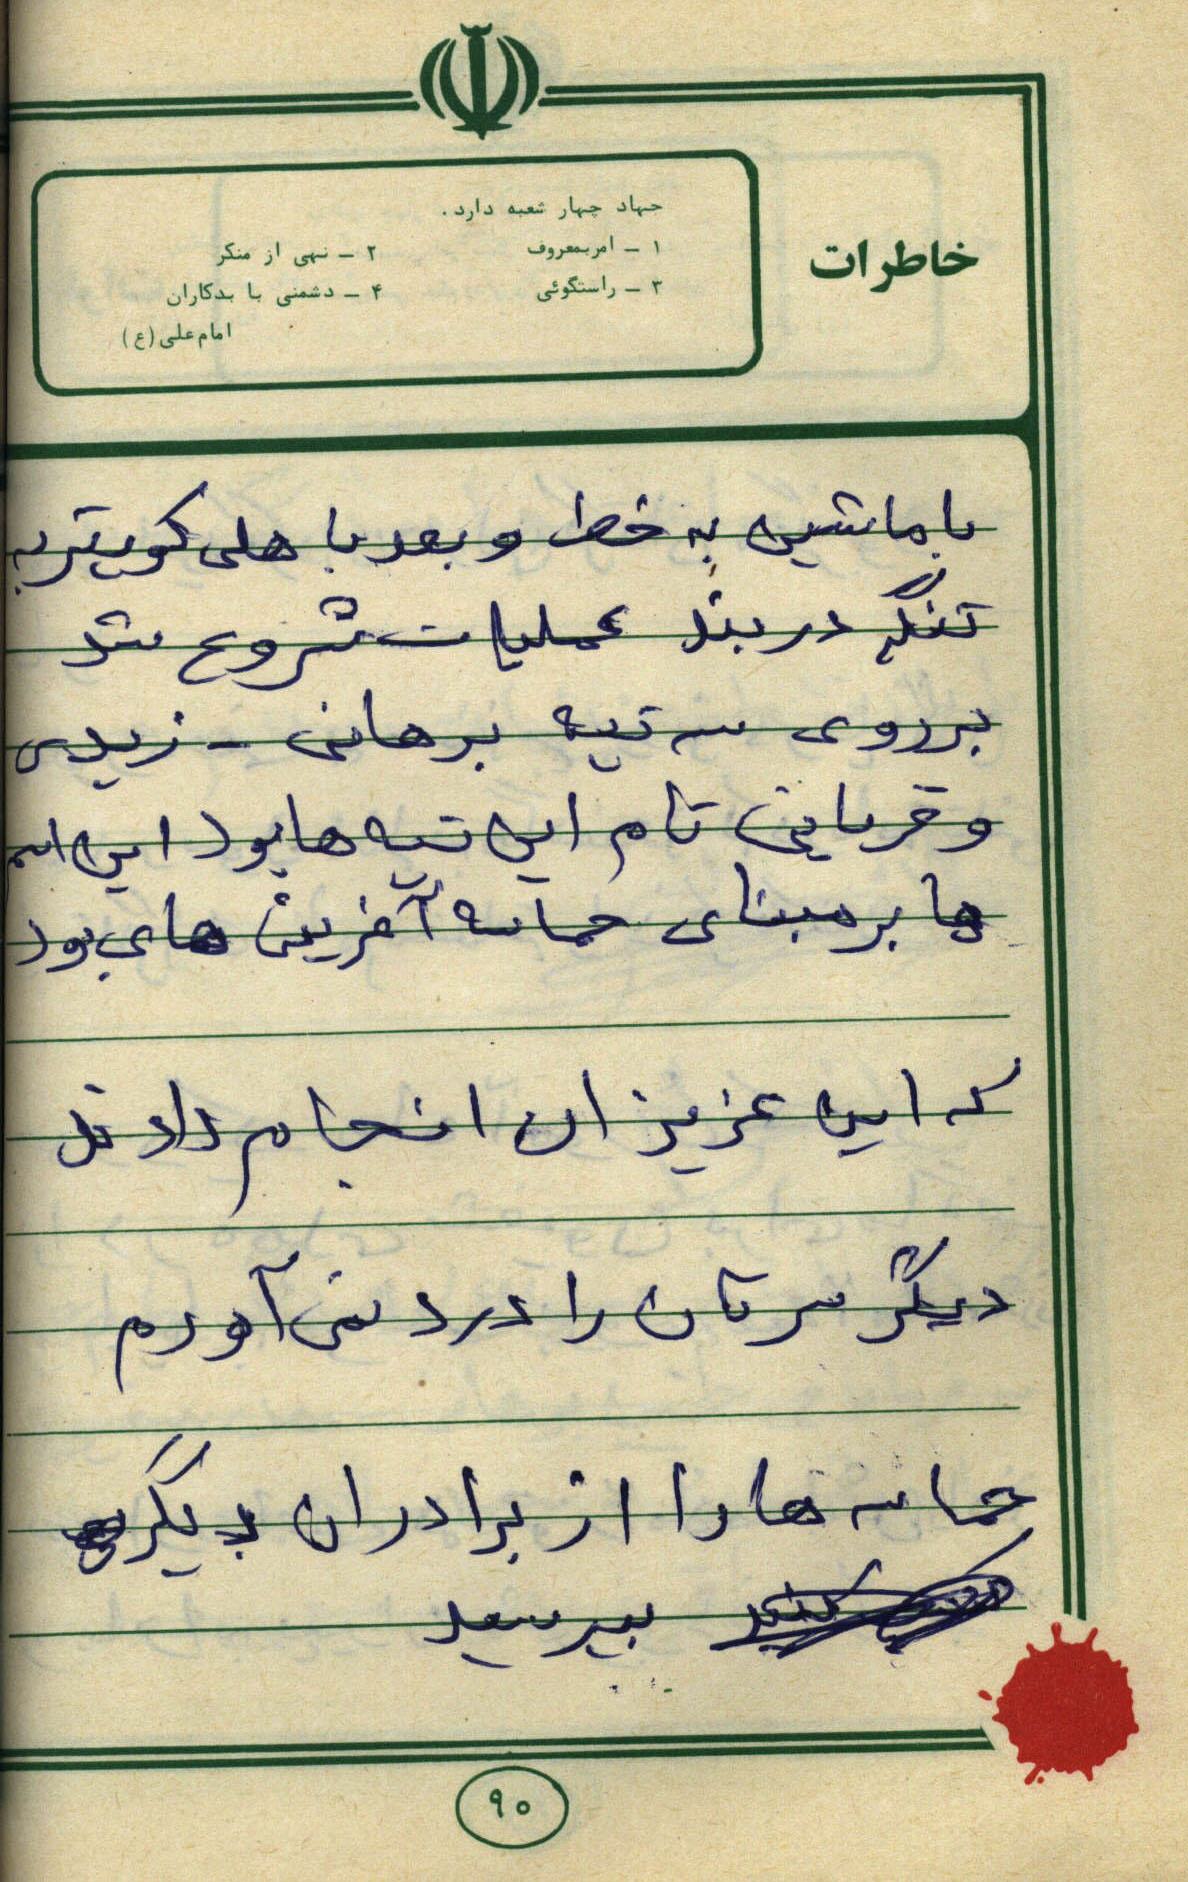 خاطرات
جهاد چهار شعبه دارد.
۱ – امربمعروف ۲ – نهی از منکر
۳ – راستگوئی ۴ – دشمنی با بدکاران
امام علی (ع)
با ماشین به خط و بعد با هلی کوپتر به
تنگه در بند عملیات شروع شد
بر روی سه تپه برهانی - زیدی
و قربانی نام این تپه ها بود این اسم
ها بر مبنای حماسه آفرینش های بود
که این عزیزان انجام دادند
دیگر سرتان را درد نمی آورم
حماسه ها را از برادران دیگر
بپرسید
۹۰